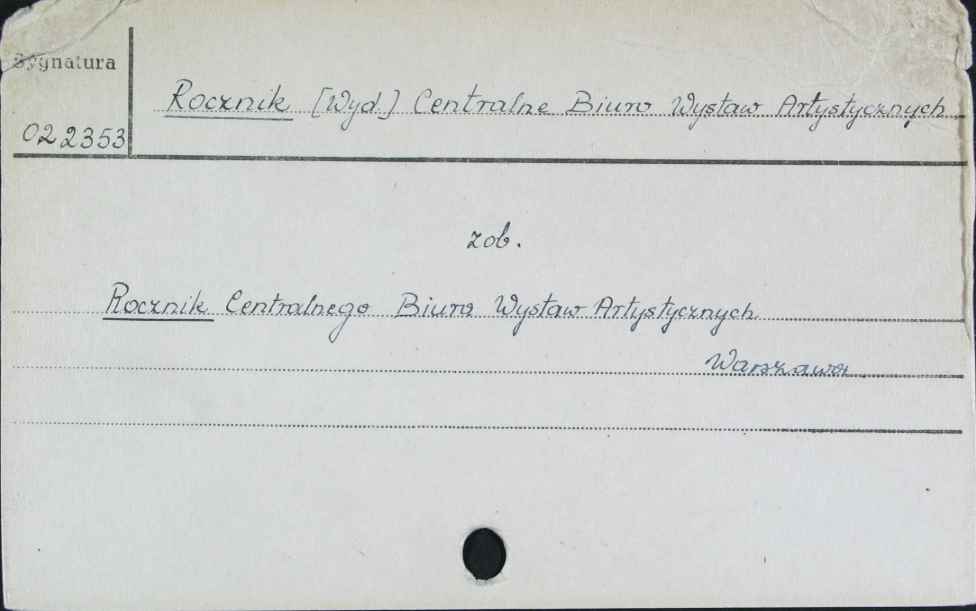 Sygnatura
Rocznik [Wyd.] Centralne Biuro Wystaw Artystycznych
022353
zob.
Rocznik Centralnego Biura Wystaw Artystycznych
Warszawa